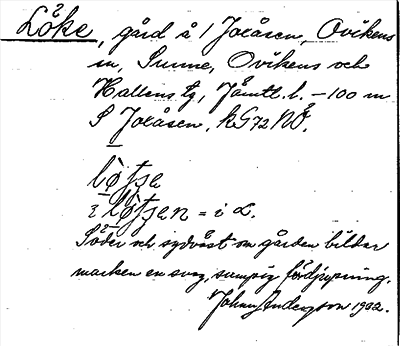 Löke, gård å 1 Joxåsen, Ovikens
sn, Sunne, Ovikens och
Hallens tg, Jämtl. l. – 100 m
S Joxåsen, kG72NÖ.
i = i L.
Söder och sydväst om gården bildar
marken en svag, sumpig fördjupning.
Johnny Andersson 1932.